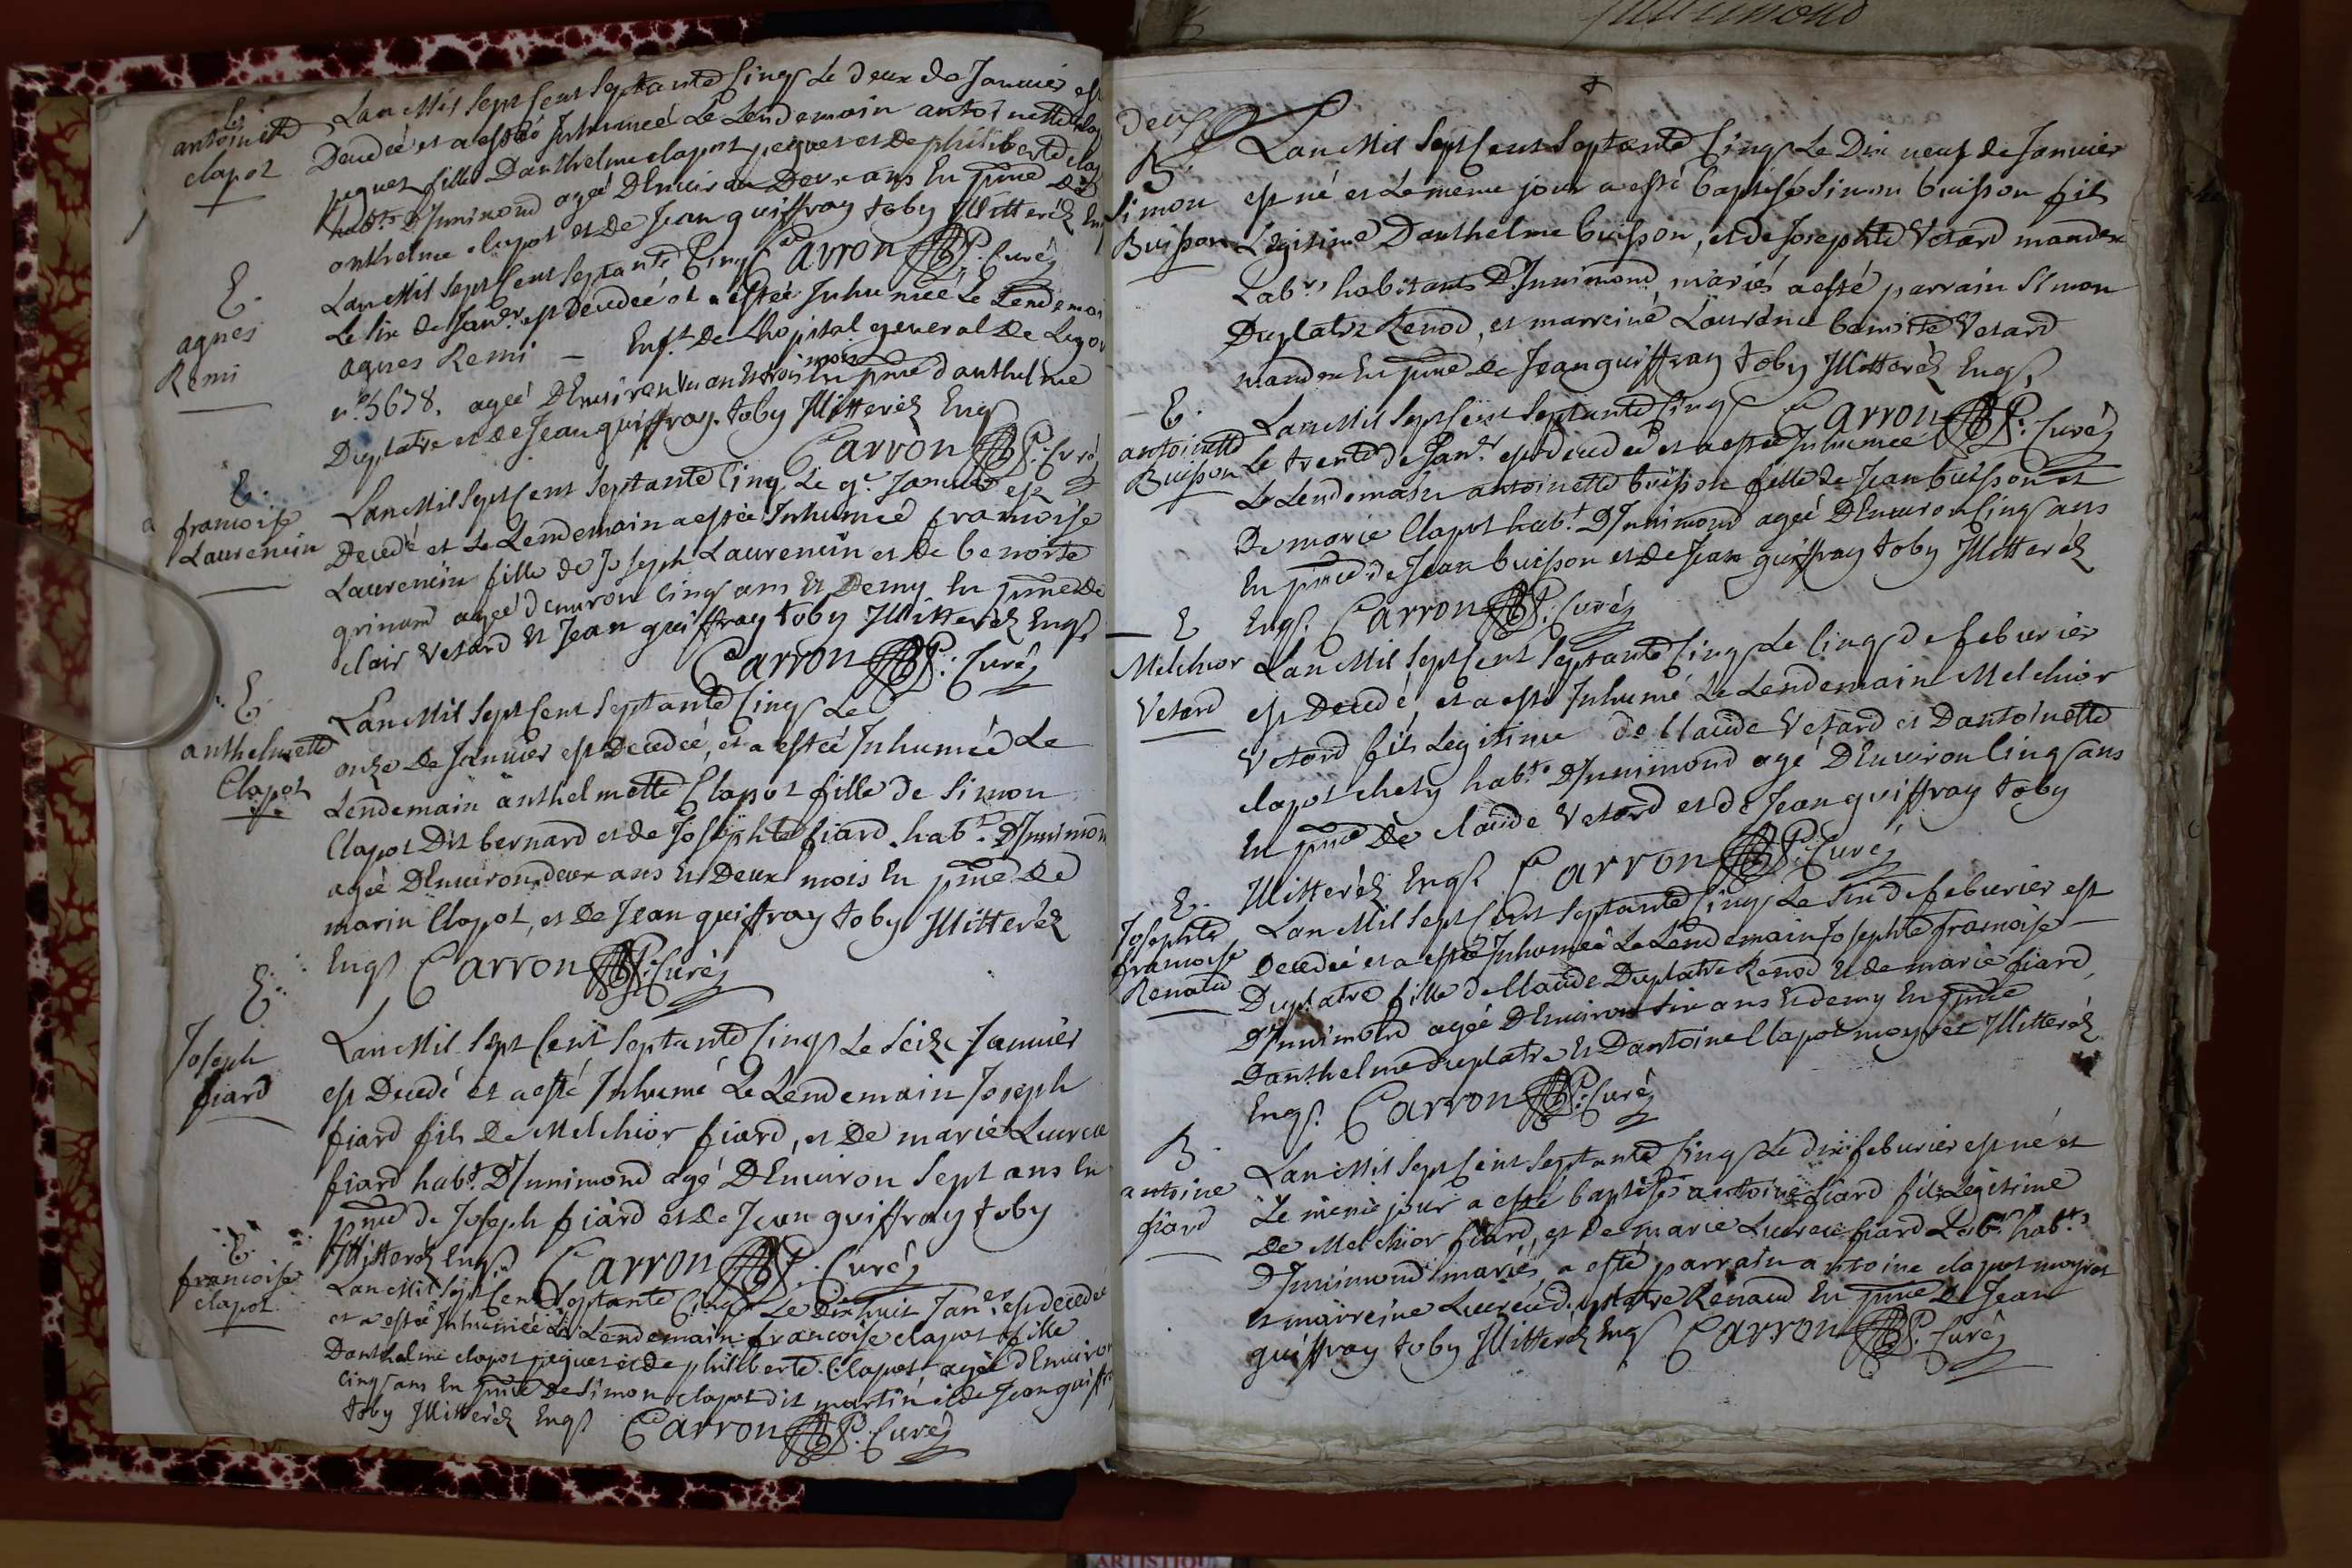 E.
antoinette
clapot
Lan Mil Sept Cent Septante Cinq Le deux de Janvier est
Decedeé et a estée Inhumeé Le Lendemain antoinette
peguet fille Danthelme clapot peguet et De philiberte
habts. D'Innimond agée D'Environ Deux ans En pnce
anthelme clapot et de Jean guiffray toby Illitteréz
Carron P: Curéz
E.
agnes
Remi
Lan Mil Sept Cent Septante Cinq
Le six de Janer. est Decedeé et a estée Inhumeé Le Lendemain
agnes Remi – Enft. De Lhopital general De Lyon
no. 5678. ageé D'Environ un an et trois mois En pnce danthelme
Duplatre et de Jean guiffray toby Illitteréz Enqs
Carron P: Curéz
E.
francoise
Laurencin
Lan Mil Sept Cent Septante Cinq Le 9e. Janvier est
Decedé et Le Lendemain a estée Inhumeé francoise
Laurencin fille de Joseph Laurencin et De benoite
grinand ageé d'environ cinq ans et Demy En pnce de
clair Vetard et Jean guiffray toby Illitteréz Enqs.
Carron P: Curéz
E.
anthelmette
Clapot
Lan Mil Sept Cent Septante Cinq Le
onze De Janvier est Decedeé, et a estée Inhumeé Le
Lendemain anthelmette Clapot fille de Simon
Clapot Dit bernard et de Josephte fiard habts. D'Innimond
ageé D'Environ deux ans et Deux mois En pnce de
marin Clapot, et De Jean guiffray toby Illitteréz
Enqs Carron P: Curéz
E.
Joseph
fiard
Lan Mil Sept Cent Septante Cinq Le Seize Janvier
est Decedé et a esté Inhumé Le Lendemain Joseph
fiard fils De Melchior fiard, et De marie Lucrece
fiard habt. D'Innimond agé D'Environ Sept ans En
pnce de Joseph fiard et de Jean guiffray toby
Illitteréz Enqs Carron P: Curéz
E.
francoise
clapot
Lan Mil Sept Cent Septante Cinq Le Dix huit Janer. est decedeé
et a estée Inhumeé Le Lendemain francoise clapot fille
Danthelme clapot peguet et de philiberte Clapot, ageé d'Environ
cinq ans En pnce De Simon clapot dit martin et de Jean guiffray
toby Illitteréz Enqs Carron P: Curéz
deux
B.
Simon
Buisson
Lan Mil Sept Cent Septante Cinq Le Dix neuf de Janvier
est né et Le meme jour a esté baptisé Simon buisson fils
Legitime Danthelme buisson, et de Josephte Vetard mandex
Labrs. habitants D'Innimond mariés a esté parrain Simon
Duplatre Renod, et marreine Laurence benoite Vetard
mandex En pnce de Jean guiffray toby Illitteréz Enqs,
Carron P: Curéz
E.
antoinette
Buisson
Lan Mil Sept Cent Septante Cinq
Le trente de Janr. est decedeé et a estée Inhumeé
Le Lendemain antoinette buisson fille de Jean buisson et
De marie Clapot habt. D'Innimond ageé D'Environ Cinq ans
En pnce de Jean buisson et de Jean guiffray toby Illitteréz
Enqs. Carron P: Curéz
E
Melchior
Vetard
Lan Mil Sept Cent Septante Cinq Le Cinq de feburier
est Decedé et a esté Inhumé Le Lendemain Melchior
Vetard fils Legitime de Claude Vetard et Dantoinette
clapot chety habts. D'Innimond agé D'Environ Cinq ans
En pnce De Claude Vetard et de Jean guiffray toby
Illitteréz Enqs. Carron P: Curéz
E.
Josephte
francoise
Renaud
Lan Mil Sept Cent Septante Cinq Le Six de feburier est
Decedeé et a estée Inhumeé Le Lendemain Josephte francoise
Duplatre fille de Claude Duplatre Renod et de marie fiard
D'Innimond ageé D'Environ Six ans et demy En pnce
Danthelme duplatre et Dantoine Clapot moyret Illitteréz
Enqs. Carron P: Curéz
B.
antoine
fiard
Lan Mil Sept Cent Septante Cinq Le dix feburier est né et
Le meme jour a esté baptisé antoine fiard fils Legitime
De Melchior fiard, et De marie Lucrece fiard Labrs. habts.
D'Innimond mariés, a esté parrain antoine clapot moyret
et marreine Lucrece duplatre Renaud En pnce De Jean
guiffray toby Illitteréz Enqs Carron P: Curéz
ARTISTIQUE